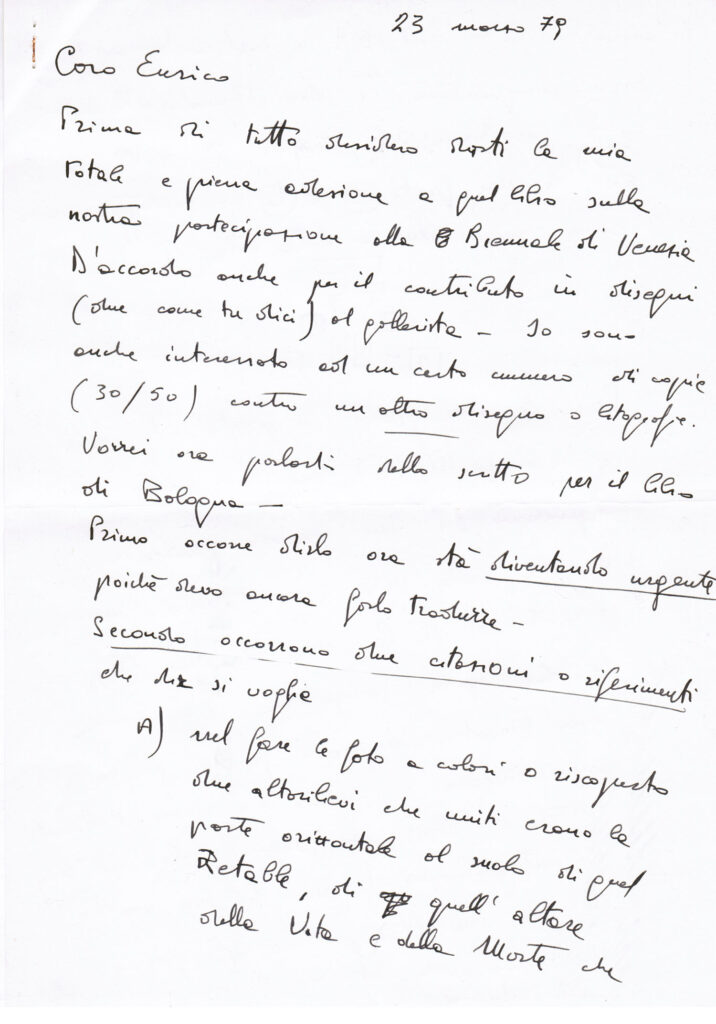 23 marzo 79
Caro Enrico
Prima di tutto desidero darti la mia
totale e piena adesione a quel libro sulla
nostra partecipazione alla Biennale di Venezia
D'accordo anche per il contributo in disegni
(due come tu dici) al gallerista - Io sono
anche interessato ad un certo numero di copie
(30/50) contro un altro disegno o litografie.
Vorrei ora parlarti dello scritto per il libro
di Bologna -
Primo occorre dirlo ora stà diventando urgente
poichè devo ancora farlo tradurre -
Secondo occorrono due citazioni o riferimenti
che si voglia
A) nel fare le foto a colori o riscoperto
due altorilievi che uniti erano la
parte orizzontale al suolo di quel
Retable, di quell'altare
della Vita e della Morte che